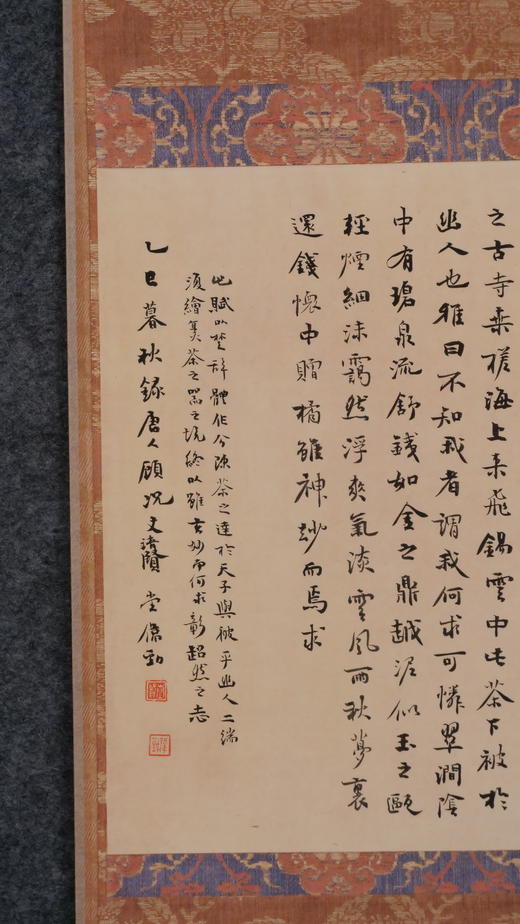 之古寺乘槎海上来飛錫雲中此茶下被於
幽人也雅曰不知我者謂我何求可憐翠澗陰
中有碧泉流舒鐵如金之鼎越泥似玉之甌
輕煙細沫靄然浮爽氣淡雲風雨秋夢裏
還錢懷中贈橘雖神妙而焉求
此賦以楚辞體作分陳茶之達於天子與被乎幽人二端
須繪煎茶之器之境終以雖玄妙而何求彰超然之志
乙巳暮秋錄唐人顧況文 堂